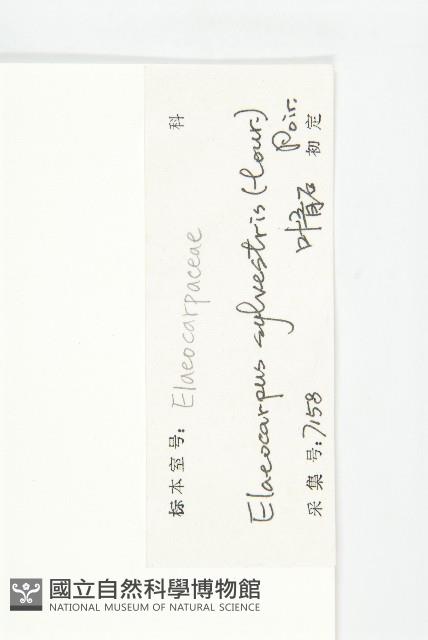 标本室号: Elaeocarpaceae 科
Elaeocarpus sylvestris (Lour.)
Poir.
采集号: 7158 叶育石 初定
國立自然科學博物館
NATIONAL MUSEUM OF NATURAL SCIENCE